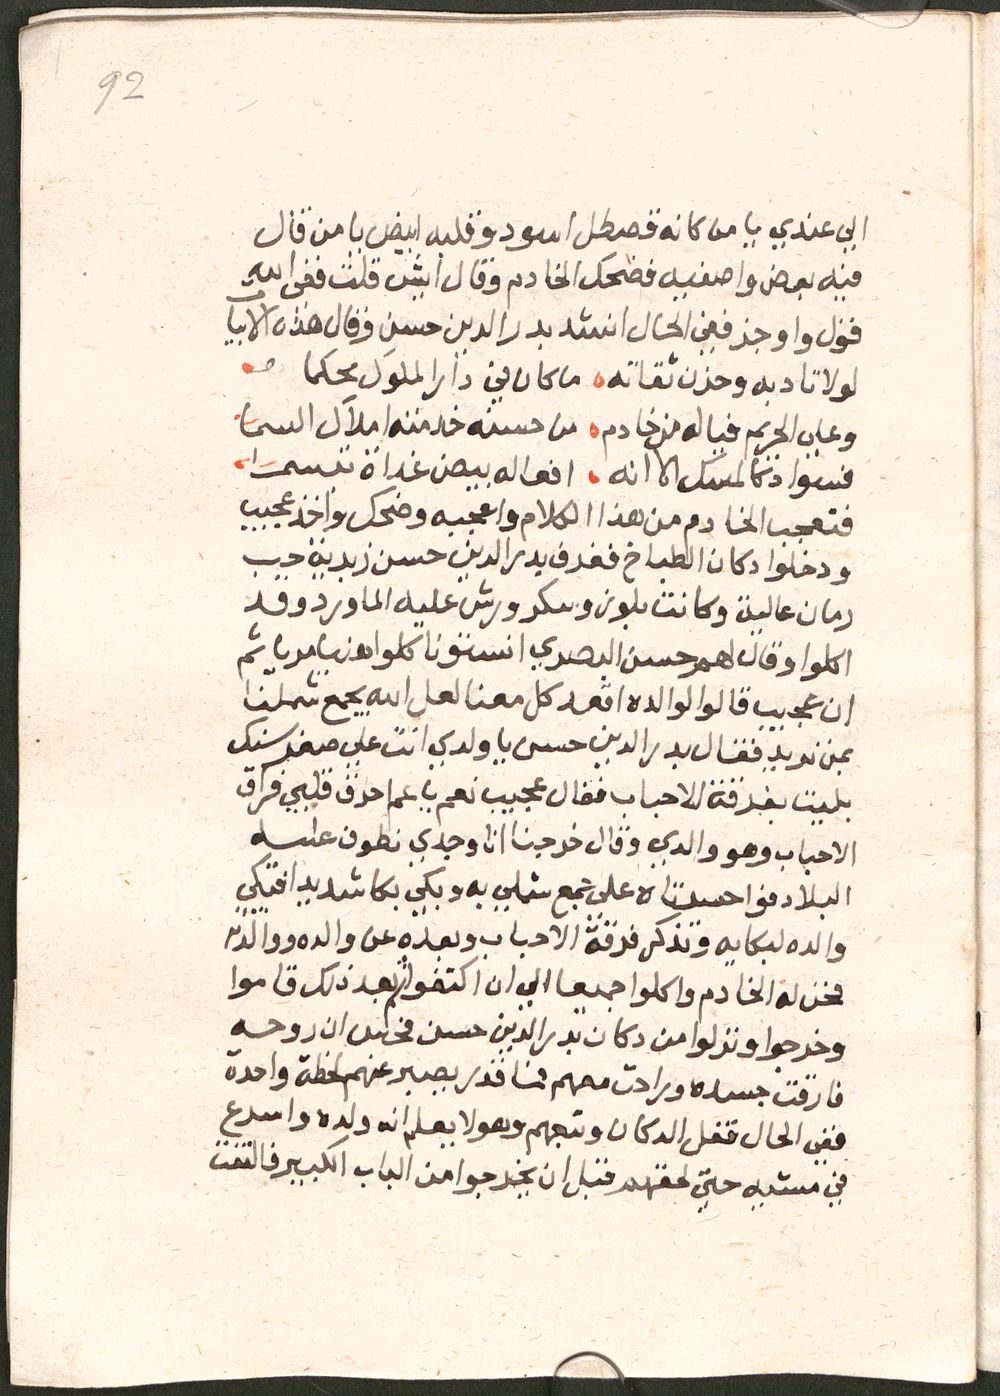 92
الي عندي يا من كانه قصطل اسود وقلبه ابيض يا من قال
فيه بعض واصفيه فضحك الخادم وقال ايش قلت ففي الله
قول واوجز ففي الحال انشد بدر الدين حسن وقال هذه الابيات
لولا تادبه وحزن ثقاته ما كان في دار الملوك محكما
وعلي الحريم فياله من خادم من حسنه خدمته املاك السما
فسواده كالمسك الا انه افعاله بيض غداة تقسما
فتعجب الخادم من هذا الكلام واعجبه وضحك واخذ عجيب
ودخلوا دكان الطباخ فغرف بدر الدين حسن زبدية حب
رمان عالية وكانت بلوز وسكر ورش عليه الماورد وقد
اكلوا وقال لهم حسن البصري انستونا كلوا هنيا مريا ثم
ان عجيب قالوا لوالده اقعد كل معنا لعل الله يجمع شملنا
بمن نريد فقال بدر الدين حسن يا ولدي انت علي صغر سنك
بليت بفرقة الاحباب فقال عجيب نعم يا عم احرق قلبي فراق
الاحباب وهو والدي وقال خرجنا انا وجدي نطوف عليه
البلاد فوا حسرتاه علي جمع شملي به وبكي بكا شديد افبكي
والده لبكايه وتذكر فرقة الاحباب وبعده عن والده ووالدته
فحن له الخادم واكلوا جميعا الي ان اكتفوا ثم بعد ذلك قاموا
وخرجوا ونزلوا من دكان بدر الدين حسن فحس ان روحه
فارقت جسده وراحت معهم فما قدر يصبر عنهم لحظة واحدة
ففي الحال قفل الدكان وتبعهم وهو لا يعلم انه ولده واسرع
في مشيه حتي لحقهم قبل ان يخرجوا من الباب الكبير فالتفت